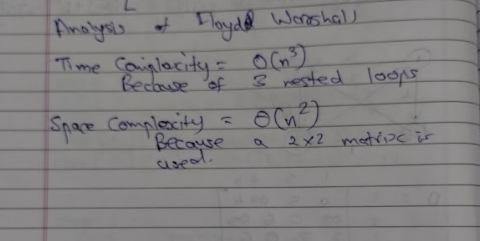 Analysis of Floyd Warshall
Time Complexity = O(n³)
Because of 3 nested loops
Space Complexity = Θ(n²)
Because a 2x2 matrix is
used.